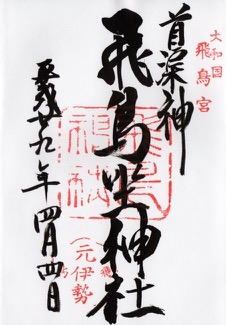 大和国
飛鳥宮
首渠神
飛鳥坐神社
(元伊勢)
平成廿九年四月四日